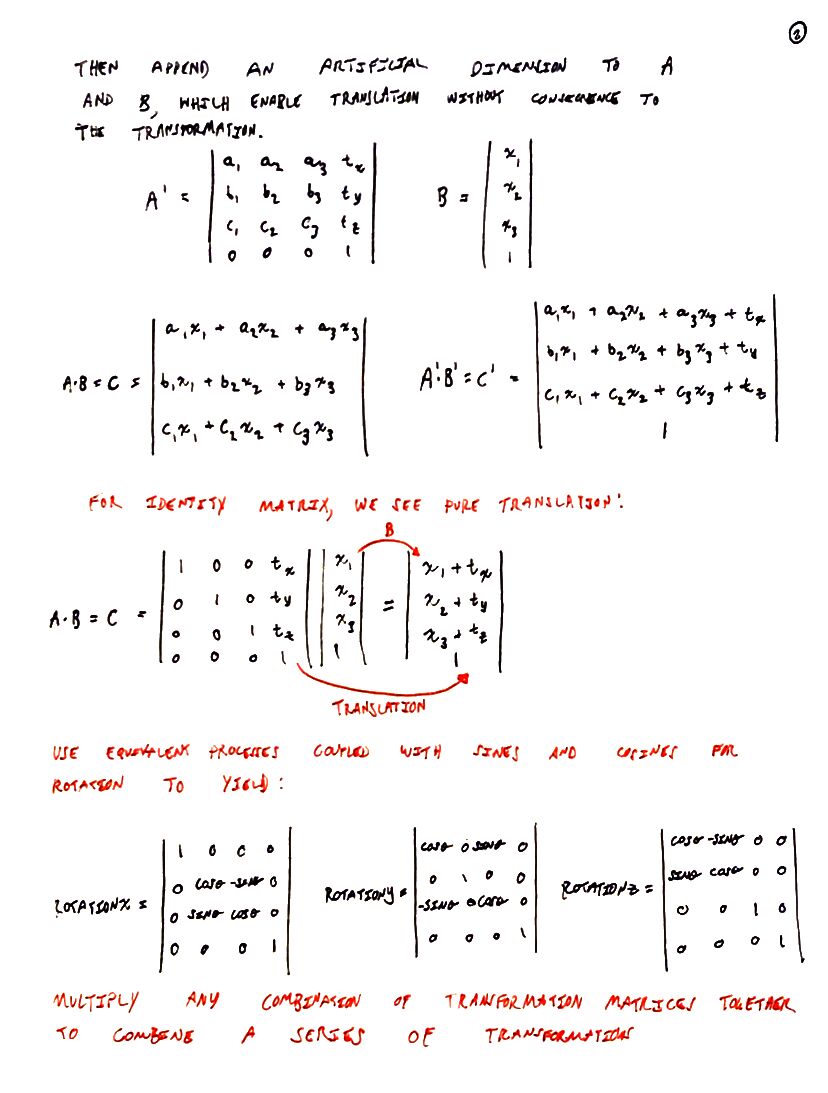 ②
THEN APPEND AN ARTIFICIAL DIMENSION TO A
AND B, WHICH ENABLE TRANSLATION WITHOUT CONSEQUENCE TO
THE TRANSFORMATION.
A' = | a₁ a₂ a₃ tₓ |
| b₁ b₂ b₃ ty |
| c₁ c₂ c₃ tz |
| 0 0 0 1 |
B = | x₁ |
| x₂ |
| x₃ |
| 1 |
A·B = C = | a₁x₁ + a₂x₂ + a₃x₃ |
| b₁x₁ + b₂x₂ + b₃x₃ |
| c₁x₁ + c₂x₂ + c₃x₃ |
A'·B' = C' = | a₁x₁ + a₂x₂ + a₃x₃ + tₓ |
| b₁x₁ + b₂x₂ + b₃x₃ + ty |
| c₁x₁ + c₂x₂ + c₃x₃ + tz |
| 1 |
FOR IDENTITY MATRIX, WE SEE PURE TRANSLATION:
B
A·B = C = | 1 0 0 tₓ | | x₁ | = | x₁ + tₓ |
| 0 1 0 ty | | x₂ | | x₂ + ty |
| 0 0 1 tz | | x₃ | | x₃ + tz |
| 0 0 0 1 | | 1 | | 1 |
TRANSLATION
USE EQUIVALENT PROCESSES COUPLED WITH SINES AND COSINES FOR
ROTATION TO YIELD:
ROTATIONX = | 1 0 0 0 |
| 0 cosθ -sinθ 0 |
| 0 sinθ cosθ 0 |
| 0 0 0 1 |
ROTATIONY = | cosθ 0 sinθ 0 |
| 0 1 0 0 |
| -sinθ 0 cosθ 0 |
| 0 0 0 1 |
ROTATIONZ = | cosθ -sinθ 0 0 |
| sinθ cosθ 0 0 |
| 0 0 1 0 |
| 0 0 0 1 |
MULTIPLY ANY COMBINATION OF TRANSFORMATION MATRICES TOGETHER
TO COMBINE A SERIES OF TRANSFORMATIONS